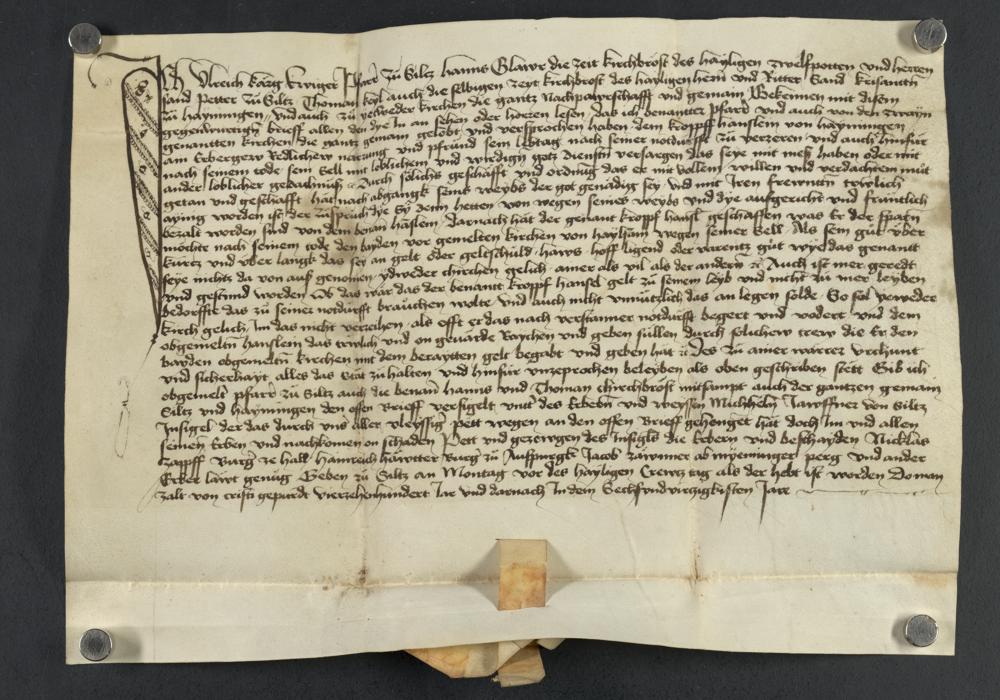 Ich Ulreich kärg Ewiger Pfarr zu Siltz hanns Glawr die zeit kirchbröst des hayligen zwelfpotten und herren
sand Petter zu Siltz Thoman keyl auch die selbigen zeyt kirchbröst des hayligen herrn und Ritter Sand
zu haymingen und auch zu yetweder kirchen die gantz Nachpawrschafft und gemain Bekennen mit disem
gegenwurtign brieff allen den dye In an sehen oder horren lesen das ich benanter pfarr und auch von den zwayn
genantten kirchen die gantz gemain gelobt und versprochen haben dem kropff hanslein von haymingen
am Erbergew Redlichew narung und pfrund sein lebtag nach seiner notdurfft zu verzeren und auch hinfür
nach seinem tode sein Sell mit loblichem und wirdign gotz dienstn versargen das seye mit mess haben oder mit
ander loblicher gedachnuss Durch sölichs geschäfft und ordnug das er mit wollem willen und verdachtem mut
getan und geschafft hat nach abgangk seins weybs der got genadig sey und mit Iren frewntn trewlich
aying worden ist der züspruch dye Sy denn hetten von wegen seines weybs und dye aufgericht und fruntlich
bezalt worden sind von dem benan häslein Darnach hat der genant kropf hansl geschaffen was Er der
möchte nach seinem tode den bayden vor gemelten kirchen von hayls wegen seiner Sell Als sein gut über
kurtz und über langk das sey an gelt oder geltschuld haws hoff ligend oder varentz güt wye das genantt
seye nichtz da von auss genomen yedweder chirchen gelich ainer als vil als der andern Auch ist mer geredt
und gestimd worden Ob das wär das der benantt kropff hansel gelt zu seinem leyb und nicht zu mer leyben
bedorffte das zu seiner notdurfft bräuchen wolte und auch nicht unnützlich das an legen solde So sol yetweder
kirch gelich Im das nicht verzeihen als offt er das nach notdurfft begert und vodert und dem
obgemeltn hanslein das trewlich und on gevärde Raychen und geben süllen durch solichew trew die Er den
bayden obgemeltn kirchen mit dem beraytten gelt begabt und geben hat Des zu ainer warer Urchunt
und sicherhayt alles das stät zu halten und hinfür unzeprochen beleyben als oben geschriben stett Gib ich
obgemelt pfarr zu Siltz auch die benan hanns und Thoman chirchbröst mitsampt auch der gantzen gemain
Siltz und haymingen den offen Brieff versigelt mit des Erbern und weysen Michheln von Siltz
Insigel der das durch uns aller vleyssig pett wegen an den offen Brieff gehenget hat doch Im und allen
seinen Erben und nachkomen on schaden Pett und gezewgen des Insigls die Erbern und beschayden Nicklas
zapff Burg ze hall hainreich härtter burg zu Jacob ab perg und ander
Erber läwt genug Geben zu Siltz an Montag vor des hayligen Crewtz tag als der hebt ist worden Do man
zalt von cristi gepurdt vierzehenhundert Jar und darnach In dem Sechs und virtzigkisten Jare